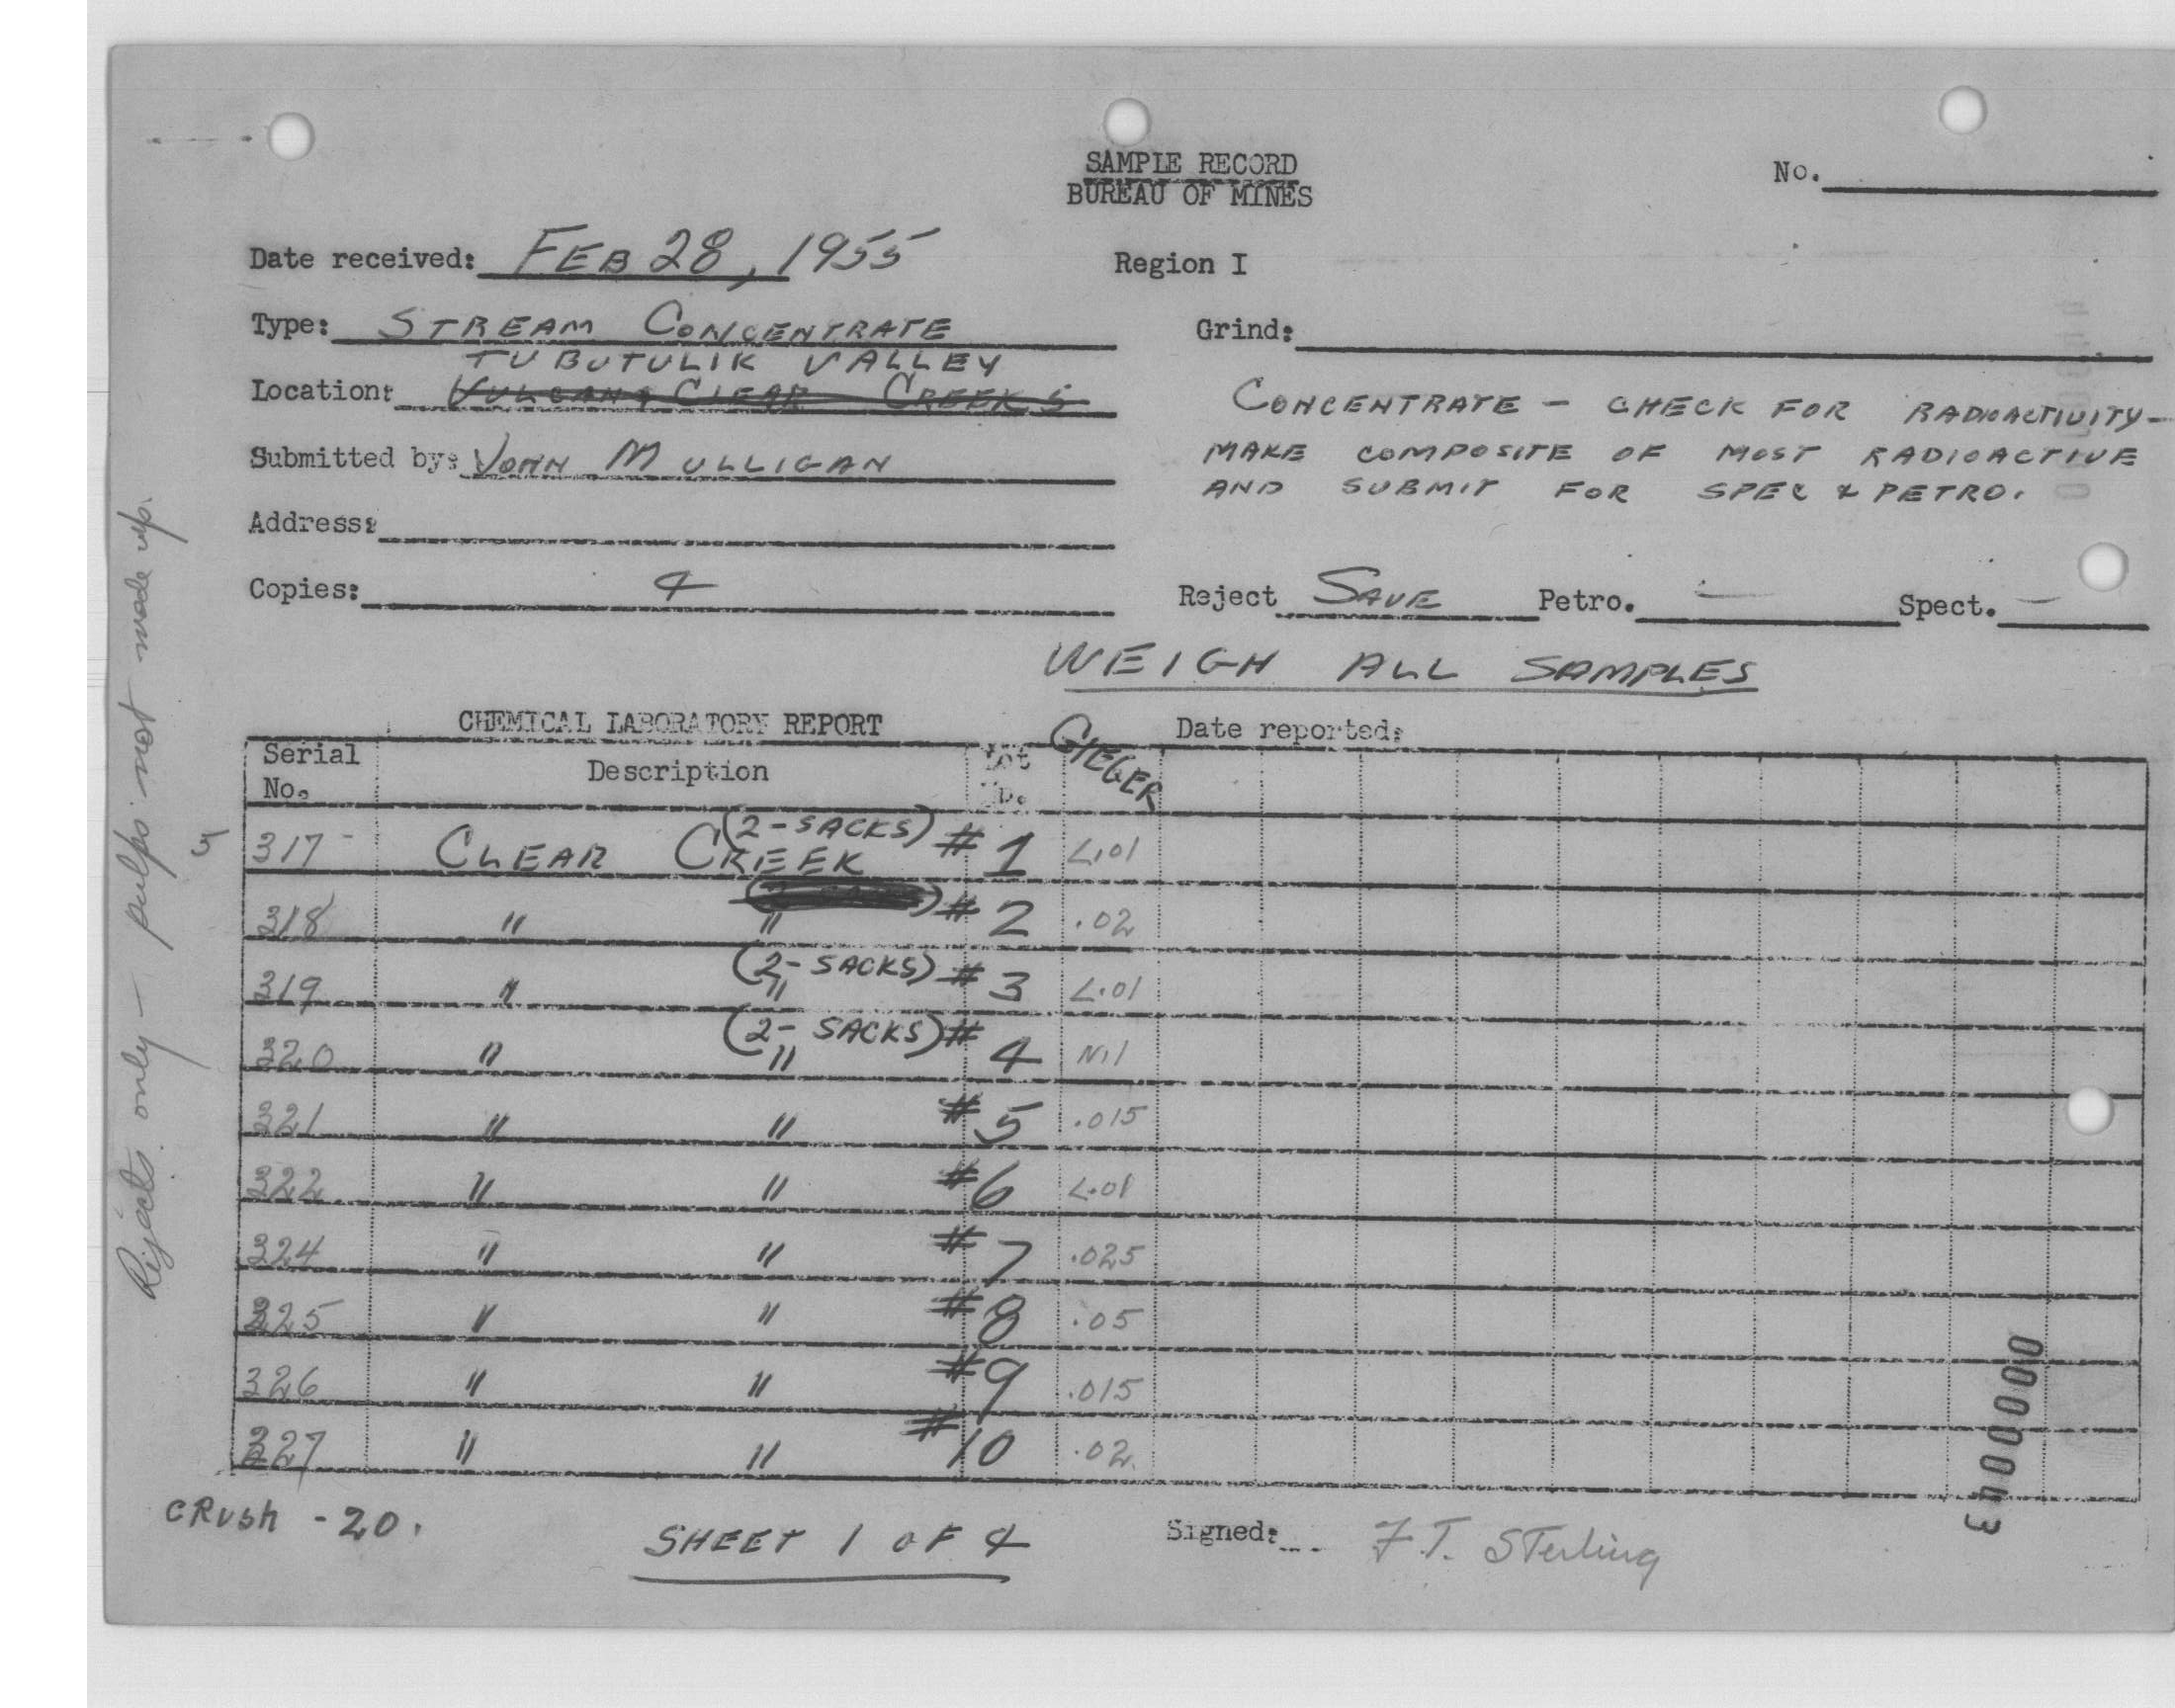 SAMPLE RECORD
BUREAU OF MINES
No.
Date received: FEB 28, 1955
Region I
Type: STREAM CONCENTRATE
Grind:
TUBUTULIK VALLEY
Location: VULCAN & CLEAR CREEKS
CONCENTRATE - CHECK FOR RADIOACTIVITY-
MAKE COMPOSITE OF MOST RADIOACTIVE
AND SUBMIT FOR SPEC & PETRO.
Submitted by: JOHN MULLIGAN
Address:
Copies: 4
Reject SAVE Petro. — Spect. —
WEIGH ALL SAMPLES
CHEMICAL LABORATORY REPORT
Date reported:
Serial No. Description Lot No. GIEGER
317 CLEAR CREEK (2-SACKS) #1 <.01
318 " " #2 .02
319 " " (2-SACKS) #3 <.01
320 " " (2-SACKS) #4 Nil
321 " " #5 .015
322 " " #6 <.01
324 " " #7 .025
325 " " #8 .05
326 " " #9 .015
327 " " #10 .02
CRush -20.
SHEET 1 OF 4
Signed: F.T. STerling
Rejects only — pulps not made up.